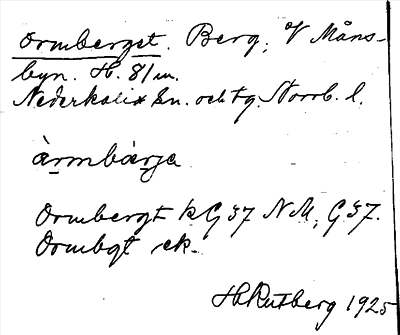 Ormberget. Berg, V Måns-
byn. H. 81 m.
Nederkalix sn. och tg. Norrb. l.
àrmbàrja
Ormberget k G 37 NM, G 37.
Ormbgt ek.
H Rutberg 1925